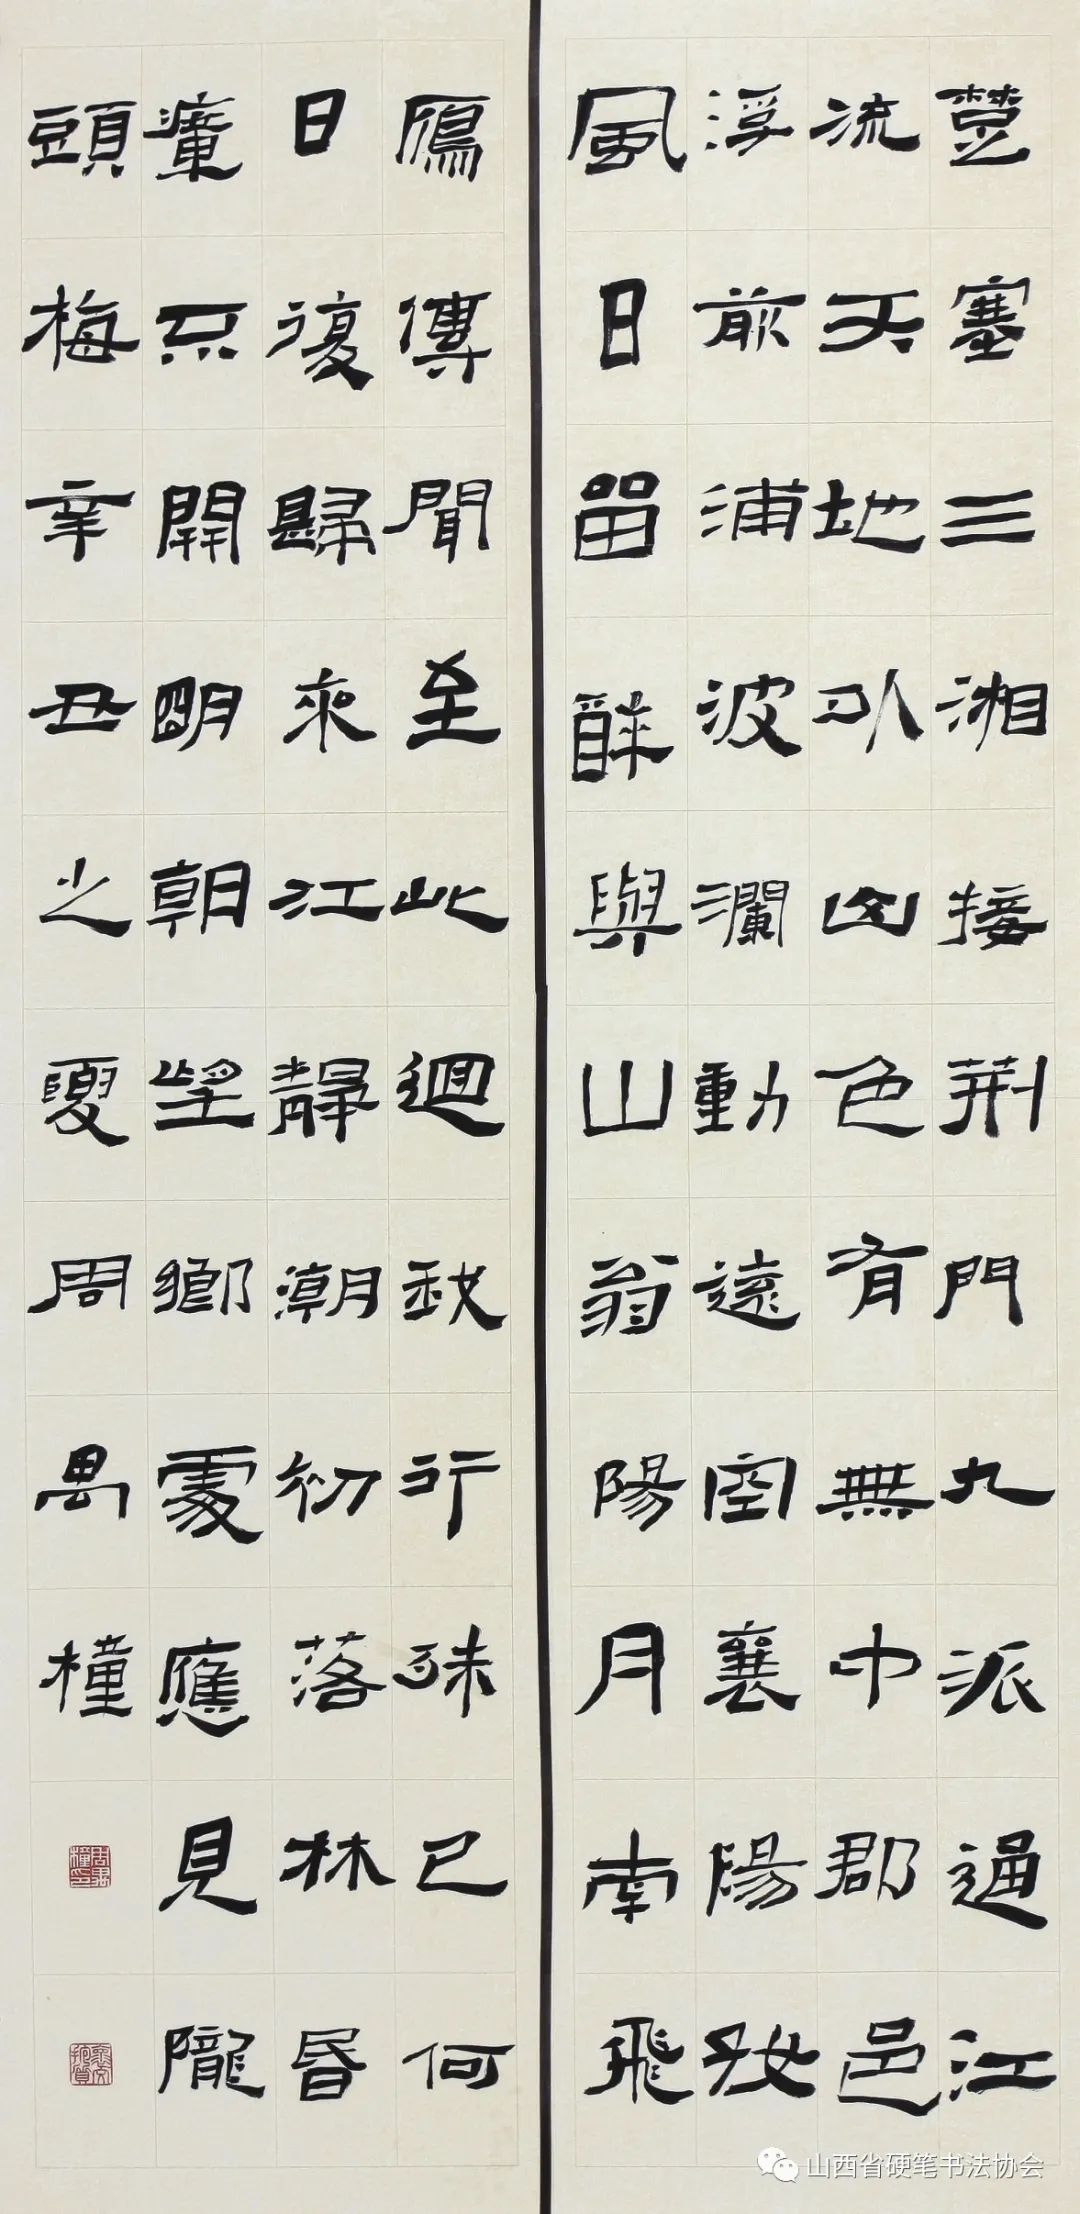 楚塞三湘接荊門九派通江
流天地外山色有無中郡邑
浮前浦波瀾動遠空襄陽好
風日留醉與山翁陽月南飛
鴈傳聞至此迴我行殊已何
日復歸來江靜潮初落林昏
瘴不開明朝望鄉處應見隴
頭梅辛丑之夏周禺橦
周禺橦印
山西省硬笔书法协会